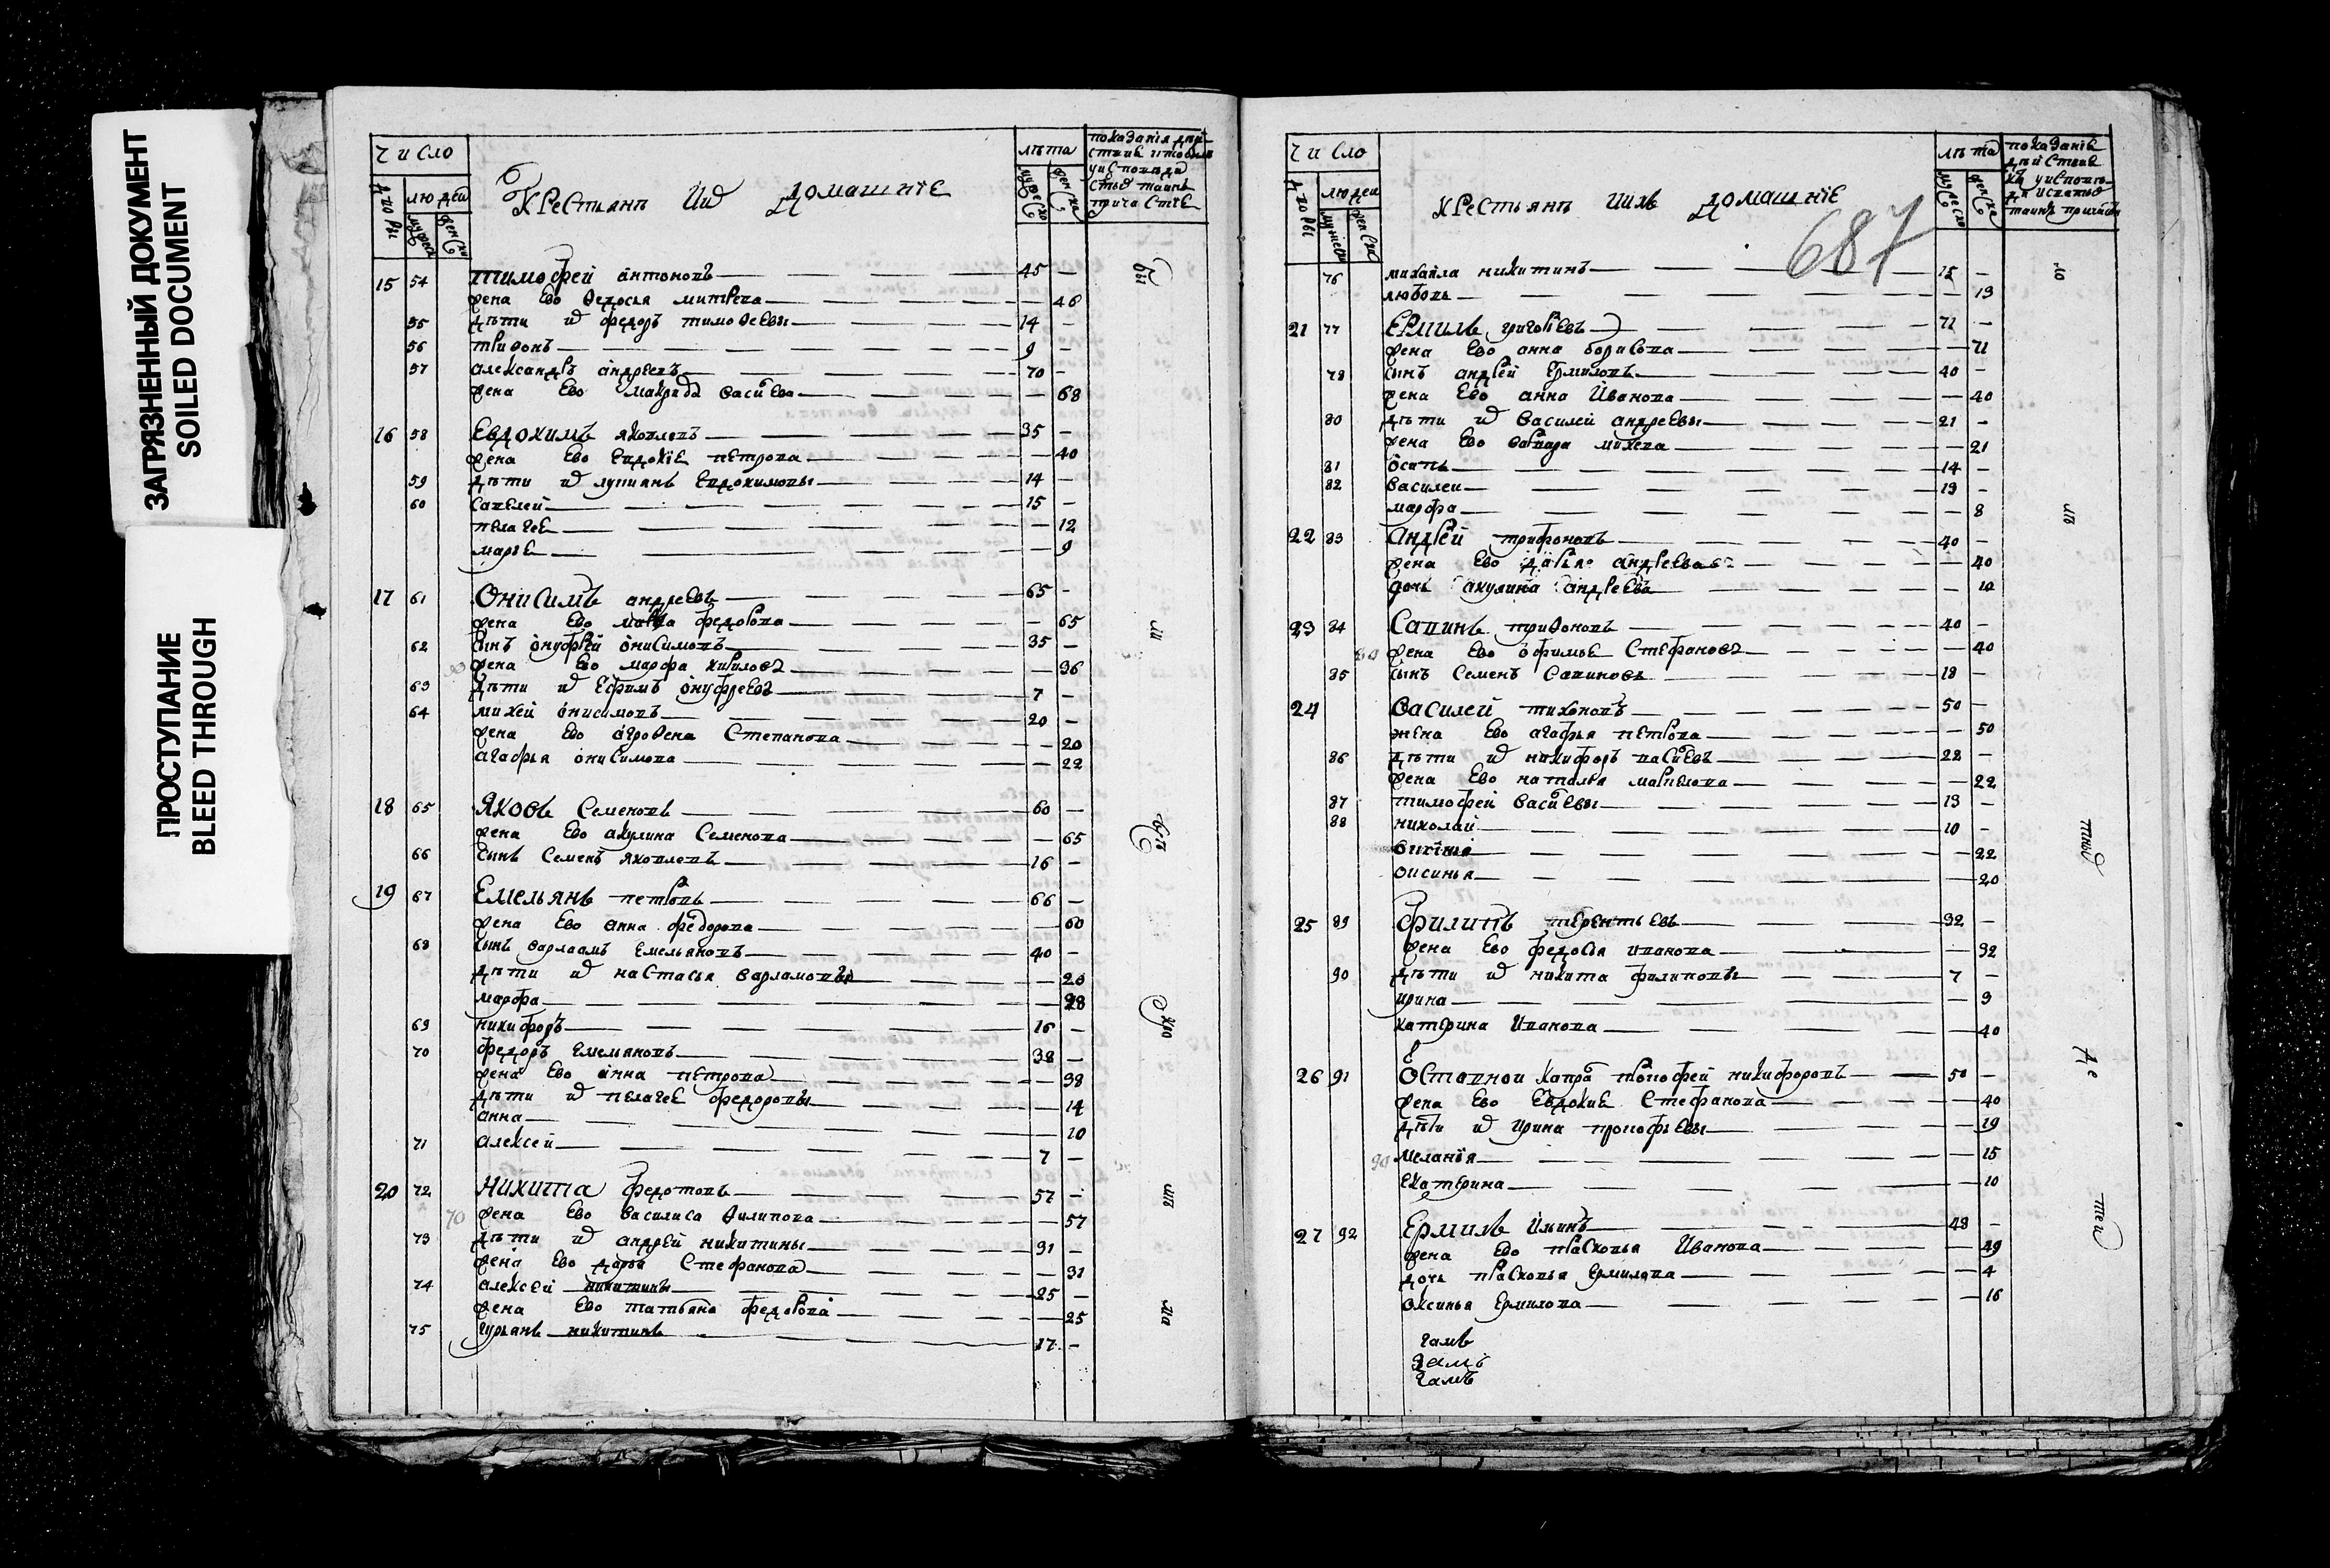 ЗАГРЯЗНЕННЫЙ ДОКУМЕНТ
SOILED DOCUMENT
ПРОСТУПАНИЕ
BLEED THROUGH
число
людей
крестьянъ ихъ домашніе
лѣта
15 54 Тимофей антоновъ 45
жена ево Ѳедосья 46
55 дѣти их федоръ тимоѳеевы 14
56 триѳонъ 9
57 александръ андреевъ 70
жена ево 68
16 58 Евдокимъ яковлевъ 35
жена ево евдокіе петрова 40
59 дѣти их лупианъ евдокимовы 14
60 савелей 15
пелагее 12
марѳе 9
17 61 Онисимъ андреевъ 65
жена ево федорова 65
62 сынъ онуфрей онисимовъ 35
жена ево марфа 36
63 дѣти их ефимъ онуфреевъ 7
64 михей онисимовъ 20
жена ево агроѳена степанова 20
агафья онисимова 22
18 65 Яковъ семеновъ 60
жена ево акулина семенова 65
66 сынъ семенъ яковлевъ 16
19 67 Емельянъ петровъ 66
жена ево анна федорова 60
68 сынъ варлаамъ емельяновъ 40
дѣти их настасья варламовы 20
марфа
69 никифоръ 16
70 федоръ емеляновъ 38
жена ево анна петрова 38
дѣти их пелагее федоровы 14
анна 10
71 алексей 7
20 72 Никита федотовъ 57
70 жена ево василиса ѳилипова 57
73 дѣти их андрей никитины 31
жена ево дарья стефанова 31
74 алексей 25
жена ево татьяна федорова 25
75 гурьянъ никитинъ 17
число
людей
крестьянъ ихъ домашніе
лѣта
687
76 михайла никитинъ 15
любовь 13
21 77 Ермилъ григорьевъ 71
жена ево анна борисова 71
78 сынъ андрей ермиловъ 40
жена ево анна иванова 40
80 дѣти их василей андреевы 21
жена ево михева 21
81 осипъ 14
82 василеи 13
марфа 8
22 83 Андрей трифоновъ 40
жена ево дарья андреева 40
дочь акулина андреева 10
23 84 Савинъ триѳоновъ 40
жена ево офимье стефанова 40
85 сынъ семенъ савиновъ 18
24 Василей тихоновъ 50
жена ево агафья петрова 50
86 дѣти их никифоръ васильевъ 22
жена ево наталья 22
87 тимофей васильевы 13
88 николай 10
22
20
25 89 Филипъ терентьевъ 32
жена ево федосья иванова 32
90 дѣти их никита филиповы 7
ирина 9
катерина иванова 40
26 91 Отставнои прокофей никифоровъ 50
жена ево евдокие стефанова 40
дѣти их ирина прокофьевы 19
90 меланья 15
екатерина 10
27 92 Ермилъ 48
жена ево прасковья иванова 49
дочь прасковья ермилова 4
оксинья ермилова 16